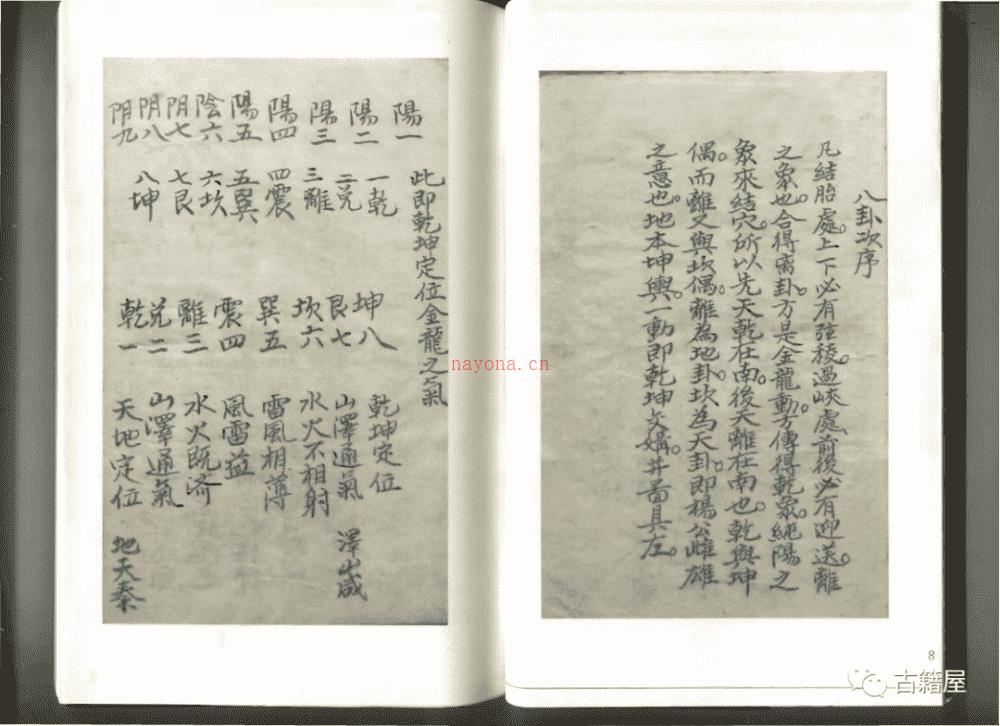 八卦次序
凡結胎處。上下必有弦稜。過峽處。前後必有迎送。離
之象也。合得离卦。方是金龍動。方傳得乾象。純陽之
象來結穴。所以先天乾在南。後天離在南也。乾與坤
偶。而離又與坎偶。離為地卦。坎為天卦。即楊公雌雄
之意也。地本坤輿。一動即乾坤交媾。并啚具左。
陽一
陽二
陽三
陽四
陽五
陰六
阴七
阴八
阴九
此即乾坤定位金龍之氣
一乾
二兑
三離
四震
五巽
六坎
七艮
八坤
坤八
艮七
坎六
巽五
震四
離三
兑二
乾一
乾坤定位
山澤通氣 澤山咸
水火不相射
雷風相薄
風雷益
水火既济
山澤通氣
天地定位 地天泰
nayona.cn
8
古籍屋